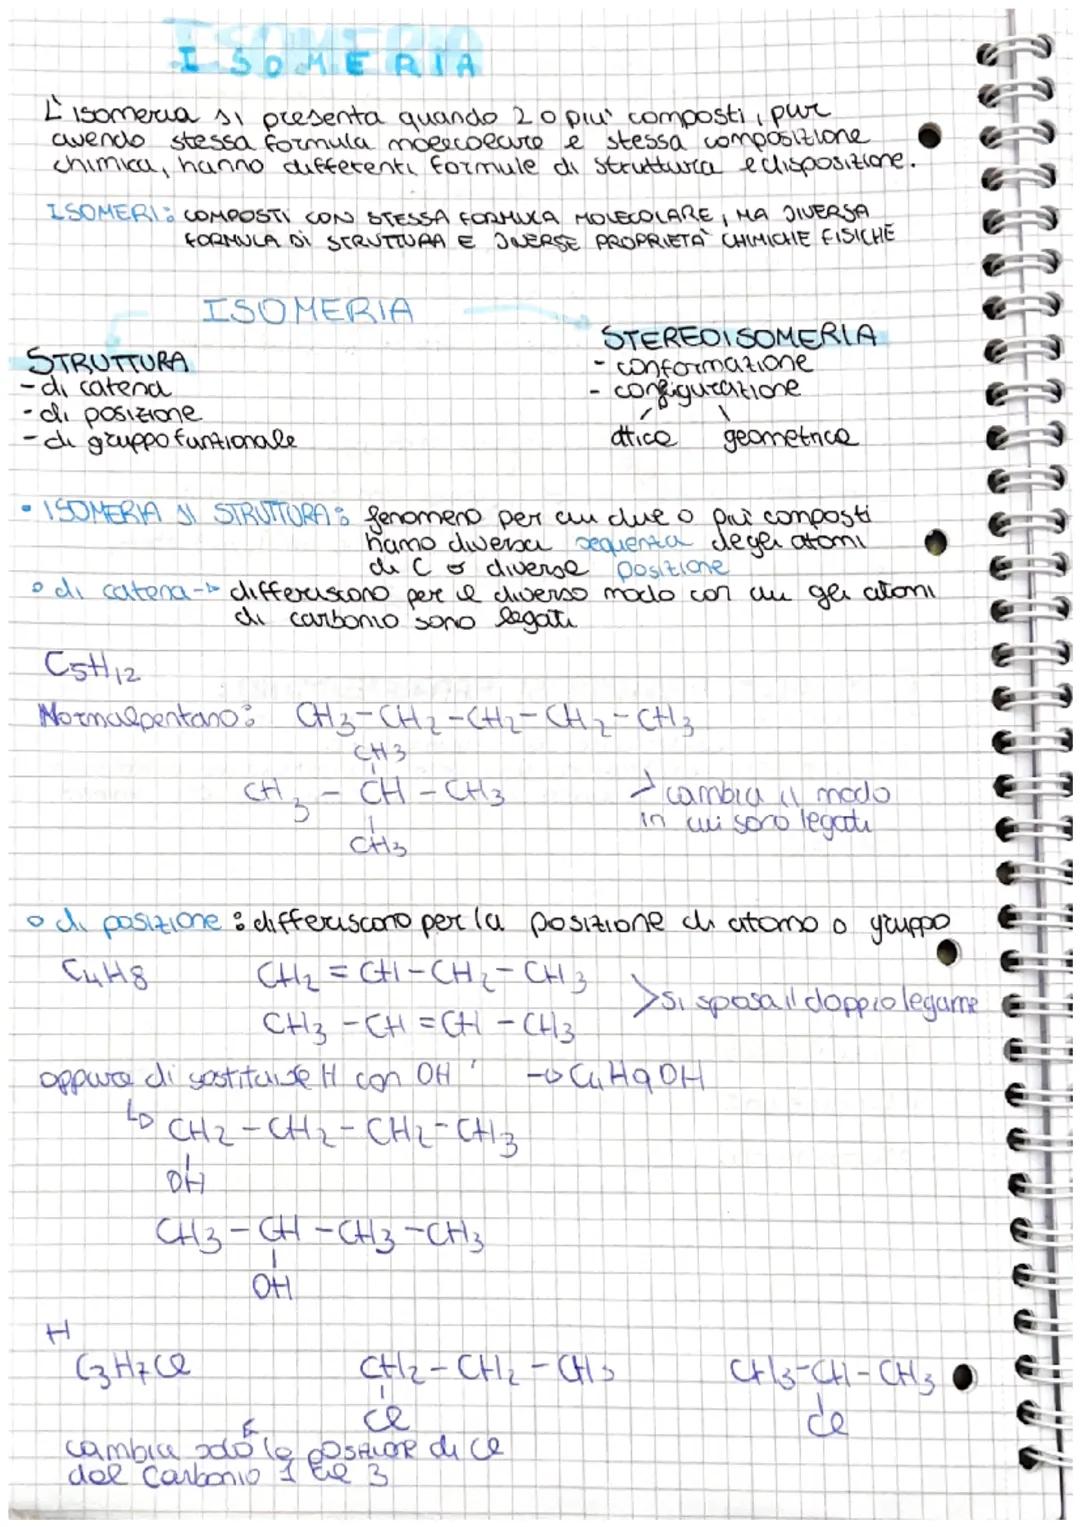 ISOMERIA
L'isomeria si presenta quando 2 o piu' composti, pur
avendo stessa formula molecolare e stessa composizione
chimica, hanno differenti formule di struttura e disposizione.
ISOMERI: COMPOSTI CON STESSA FORMULA MOLECOLARE, MA DIVERSA
FORMULA DI STRUTTURA E DIVERSE PROPRIETA' CHIMICHE FISICHE
ISOMERIA
STRUTTURA
- di catena
- di posizione
- di gruppo funzionale
STEREOISOMERIA
- conformazione
- configurazione
ottica geometrica
• ISOMERIA DI STRUTTURA: fenomeno per cui due o più composti
hanno diversa sequenza degli atomi
di C o diverse posizione
o di catena -> differiscono per il diverso modo con cui gli atomi
di carbonio sono legati
C5H12
Normalpentano: CH3-CH2-CH2-CH2-CH3
CH3
CH3 - CH - CH3
CH3
> cambia il modo
in cui sono legati
o di posizione: differiscono per la posizione di atomo o gruppo
C4H8 CH2=CH-CH2-CH3
CH3-CH=CH-CH3
> si sposa il doppio legame
oppure di sostituire H con OH -> C4H9OH
CH2-CH2-CH2-CH3
OH
CH3-CH-CH3-CH3
OH
H
C3H7Cl CH2-CH2-CH3 CH3-CH-CH3
Cl Cl
cambia solo la posizione di Cl
dal Carbonio 1 al 3